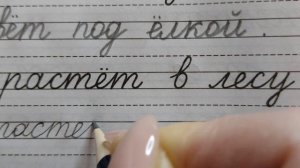 вёт под ёлкой.
растёт в лесу
расте